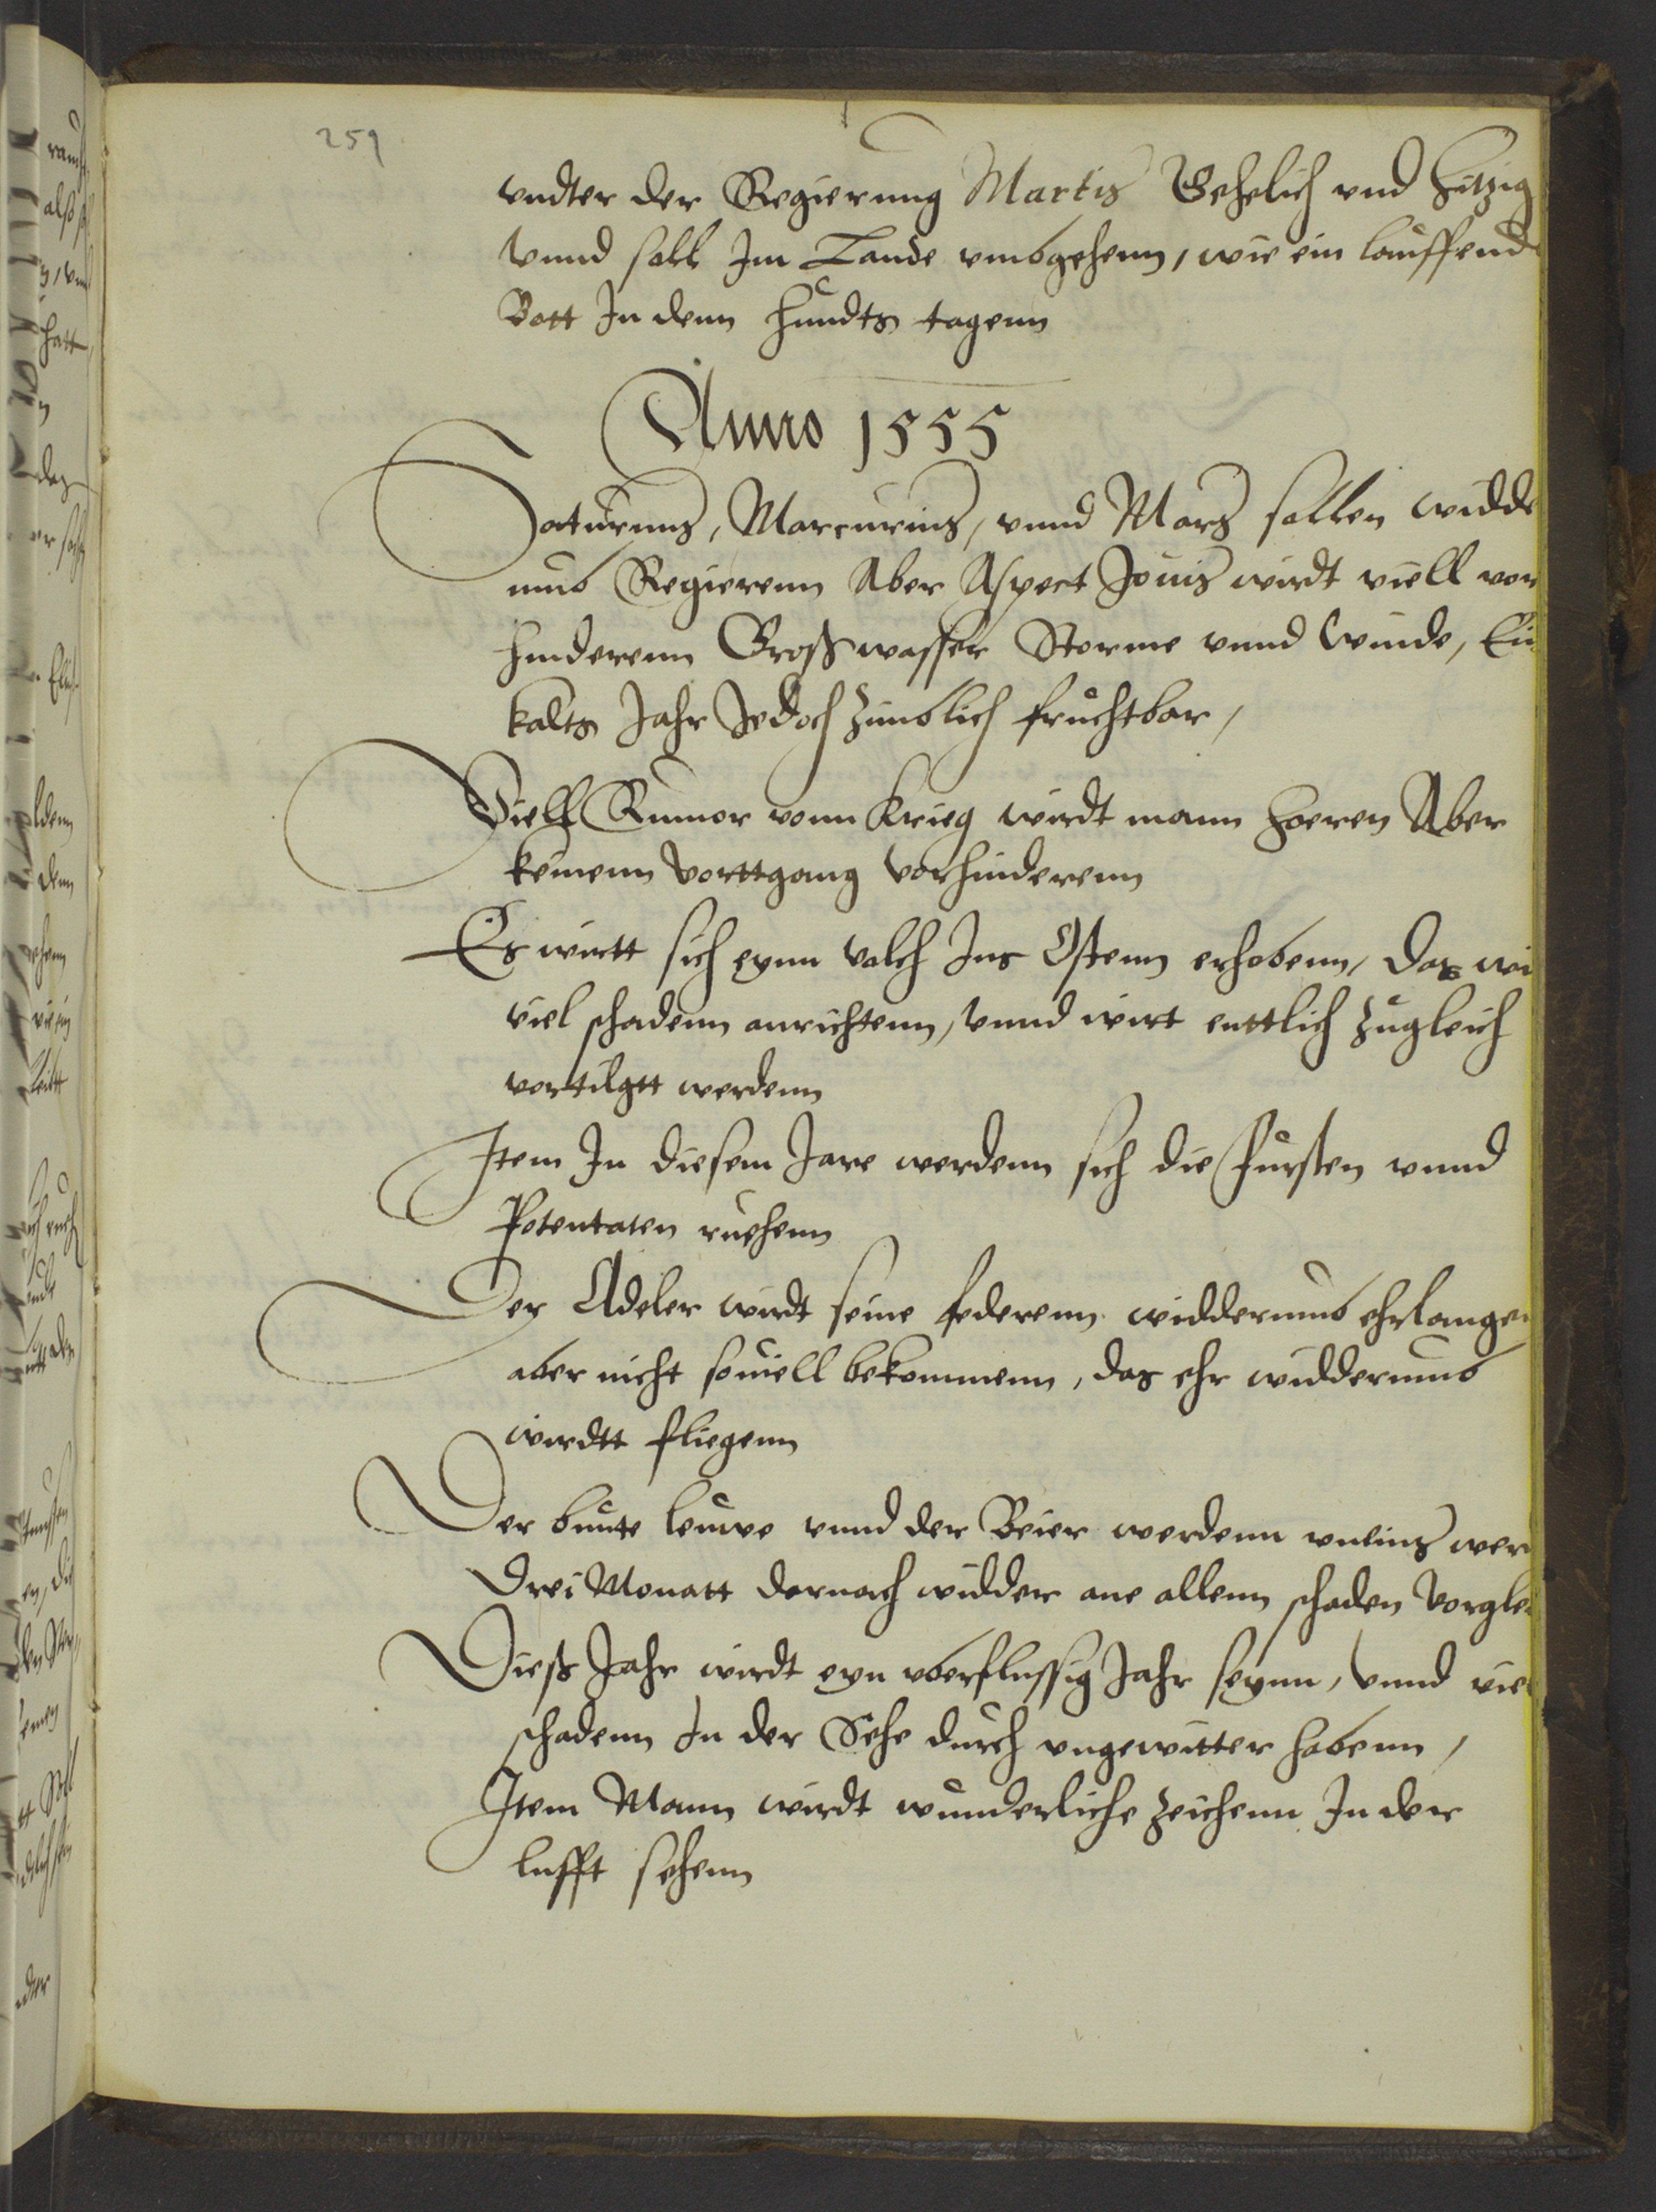 259
vndter der Regierung Martis Gehelich vnd hitzig
vnnd soll Im Lande vmbgehenn, wie ein lauffend
Bott In denn hundts tagenn
Anno 1555
Saturnus, Marcurius, vnnd Mars sollen widde
umb Regierenn Aber Aspect Jouis wirdt viell vor
hinderenn Groß wasser Storme vnnd Winde, Ein
kalts Jahr Jedoch zimblich fruchtbar,
Viell Rumor vonn Krieg wirdt mann hoeren Aber
keinenn Vorttgang vorhinderenn
Es wirtt sich eynn volck Ins Ostenn erhobenn, das wi
viel schadenn anrichtenn, vnnd wirt enttlich zugleich
vortilgtt werdenn
Item In diesem Jare werdenn sich die fursten vnnd
Potentaten ruehenn
Der Adeler wirdt seine federenn widderumb ehrlangen
aber nicht souiell bekommenn, das ehr widderumb
wirdtt fliegenn
Der bunte leuwe vnnd der Beier werdenn vneins wer
Drei Monatt darnach widder ane allenn schaden vorglei
Dieß Jahr wirdt eyn vberflussig Jahr seynn, vnnd viel
schadenn In der Sehe durch vngewitter habenn,
Item Mann wirdt wunderliche zeichenn In der
lufft sehenn